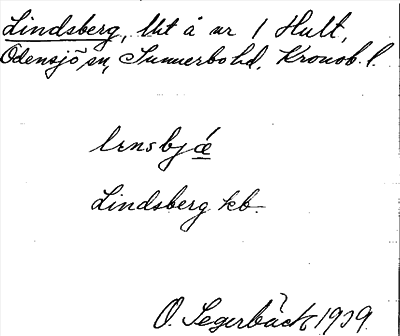 Lindsberg, lht å nr 1 Hult,
Odensjö sn, Sunnerbo hd. Kronob. l.
Lindsberg kb.
O. Segerbäck 1939.